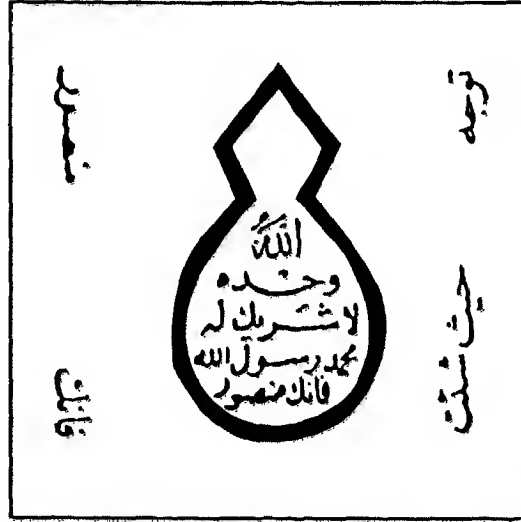 الله
وحده
لا شريك له
محمد رسول الله
فانك منصور
توجه
حيث شئت
فانك
منصور